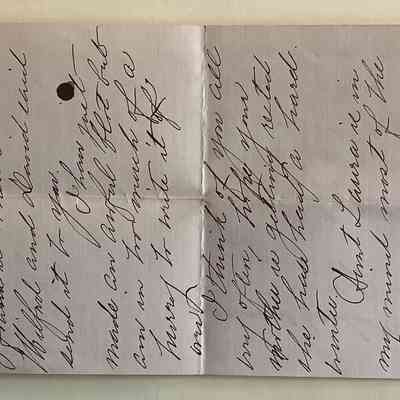 and David will
send it to you.
I have just
made an awful blot but
am in too much of a
hurry to write it off
over
I think of you all
very often, hope your
mother is getting rested
she has had a hard
winter. Aunt Laura is in
my mind most of the